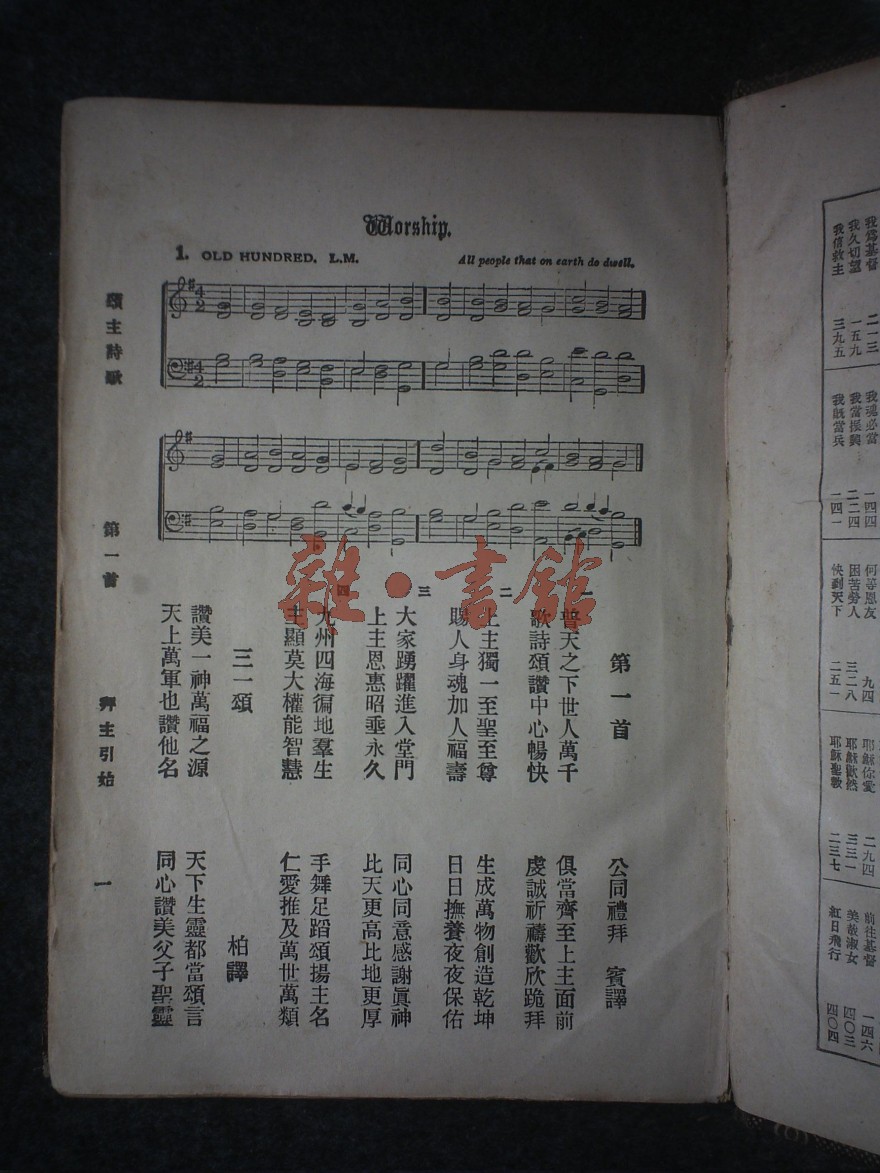 Worship.
1. OLD HUNDRED. L.M. All people that on earth do dwell.
4 2
4 2
雜·書館
第一首 公同禮拜 賓譯
一 普天之下世人萬千 俱當齊至上主面前
歌詩頌讚中心暢快 虔誠祈禱歡欣跪拜
二 上主獨一至聖至尊 生成萬物創造乾坤
賜人身魂加人福壽 日日撫養夜夜保佑
三 大家踴躍進入堂門 同心同意感謝眞神
上主恩惠昭垂永久 比天更高比地更厚
四 九州四海徧地羣生 手舞足蹈頌揚主名
主顯莫大權能智慧 仁愛推及萬世萬類
三一頌 柏譯
讚美一神萬福之源 天下生靈都當頌言
天上萬軍也讚他名 同心讚美父子聖靈
頌主詩歌 第一首 拜主引始 一
我爲基督 二一三
我久切望 一五九
我信救主 三九五
我魂必當 一四四
我當振興 二二四
我既當兵 二四一
何等恩友 九四
困苦勞人 三二八
快到天下 二五一
耶穌你愛 二九四
耶穌歡然 三三一
耶穌聖教 二三七
前往基督 一四六
美哉淑女 四〇三
紅日飛行 四〇四